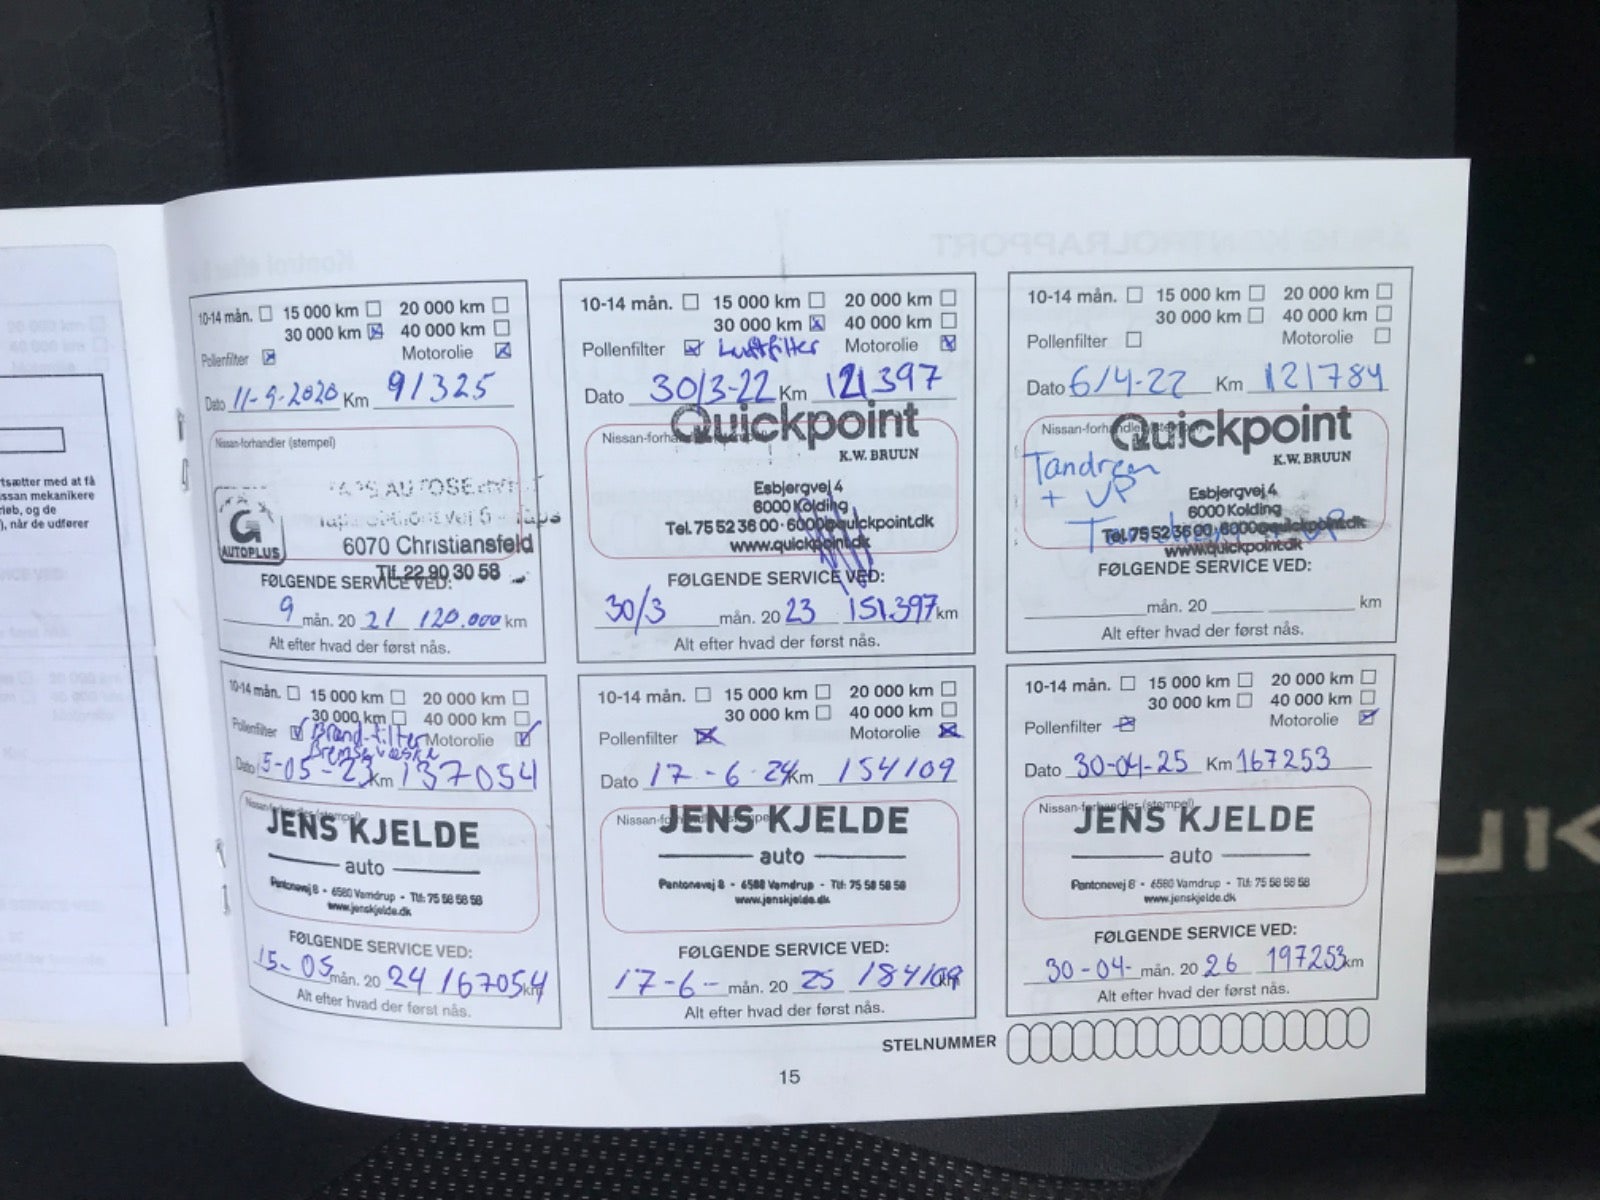 tsætter med at få
ssan mekanikere
rløb, og de
), når de udfører
10-14 mån. 15 000 km 20 000 km
30 000 km 40 000 km
Pollenfilter Motorolie
Dato 11-9-2020 Km 91325
Nissan-forhandler (stempel)
G
AUTOPLUS
6070 Christiansfeld
Tlf. 22 90 30 58
FØLGENDE SERVICE VED:
9 mån. 20 21 120.000 km
Alt efter hvad der først nås.
10-14 mån. 15 000 km 20 000 km
30 000 km 40 000 km
Pollenfilter Luftfilter Motorolie
Dato 30/3-22 Km 121397
Quickpoint
K.W. BRUUN
Esbjergvej 4
6000 Kolding
Tel. 75 52 36 00 · 6000@quickpoint.dk
www.quickpoint.dk
FØLGENDE SERVICE VED:
30/3 mån. 20 23 151.397 km
Alt efter hvad der først nås.
10-14 mån. 15 000 km 20 000 km
30 000 km 40 000 km
Pollenfilter Motorolie
Dato 6/4-22 Km 121784
Quickpoint
K.W. BRUUN
Tandrem
+ VP
Esbjergvej 4
6000 Kolding
Tel. 75 52 36 00 · 6000@quickpoint.dk
www.quickpoint.dk
FØLGENDE SERVICE VED:
mån. 20 km
Alt efter hvad der først nås.
10-14 mån. 15 000 km 20 000 km
30 000 km 40 000 km
Pollenfilter Brænd-filter Motorolie
Bremsevæske
Dato 15-05-23 Km 137054
JENS KJELDE
auto
Pantonevej 8 - 6580 Vamdrup - Tlf: 75 58 58 58
www.jenskjelde.dk
FØLGENDE SERVICE VED:
15-05 mån. 20 24 167054 km
Alt efter hvad der først nås.
10-14 mån. 15 000 km 20 000 km
30 000 km 40 000 km
Pollenfilter Motorolie
Dato 17-6-24 Km 154109
JENS KJELDE
auto
Pantonevej 8 - 6580 Vamdrup - Tlf: 75 58 58 58
www.jenskjelde.dk
FØLGENDE SERVICE VED:
17-6- mån. 20 25 184109 km
Alt efter hvad der først nås.
10-14 mån. 15 000 km 20 000 km
30 000 km 40 000 km
Pollenfilter Motorolie
Dato 30-04-25 Km 167253
Nissan-forhandler (stempel)
JENS KJELDE
auto
Pantonevej 8 - 6580 Vamdrup - Tlf: 75 58 58 58
www.jenskjelde.dk
FØLGENDE SERVICE VED:
30-04- mån. 20 26 197253 km
Alt efter hvad der først nås.
STELNUMMER
15